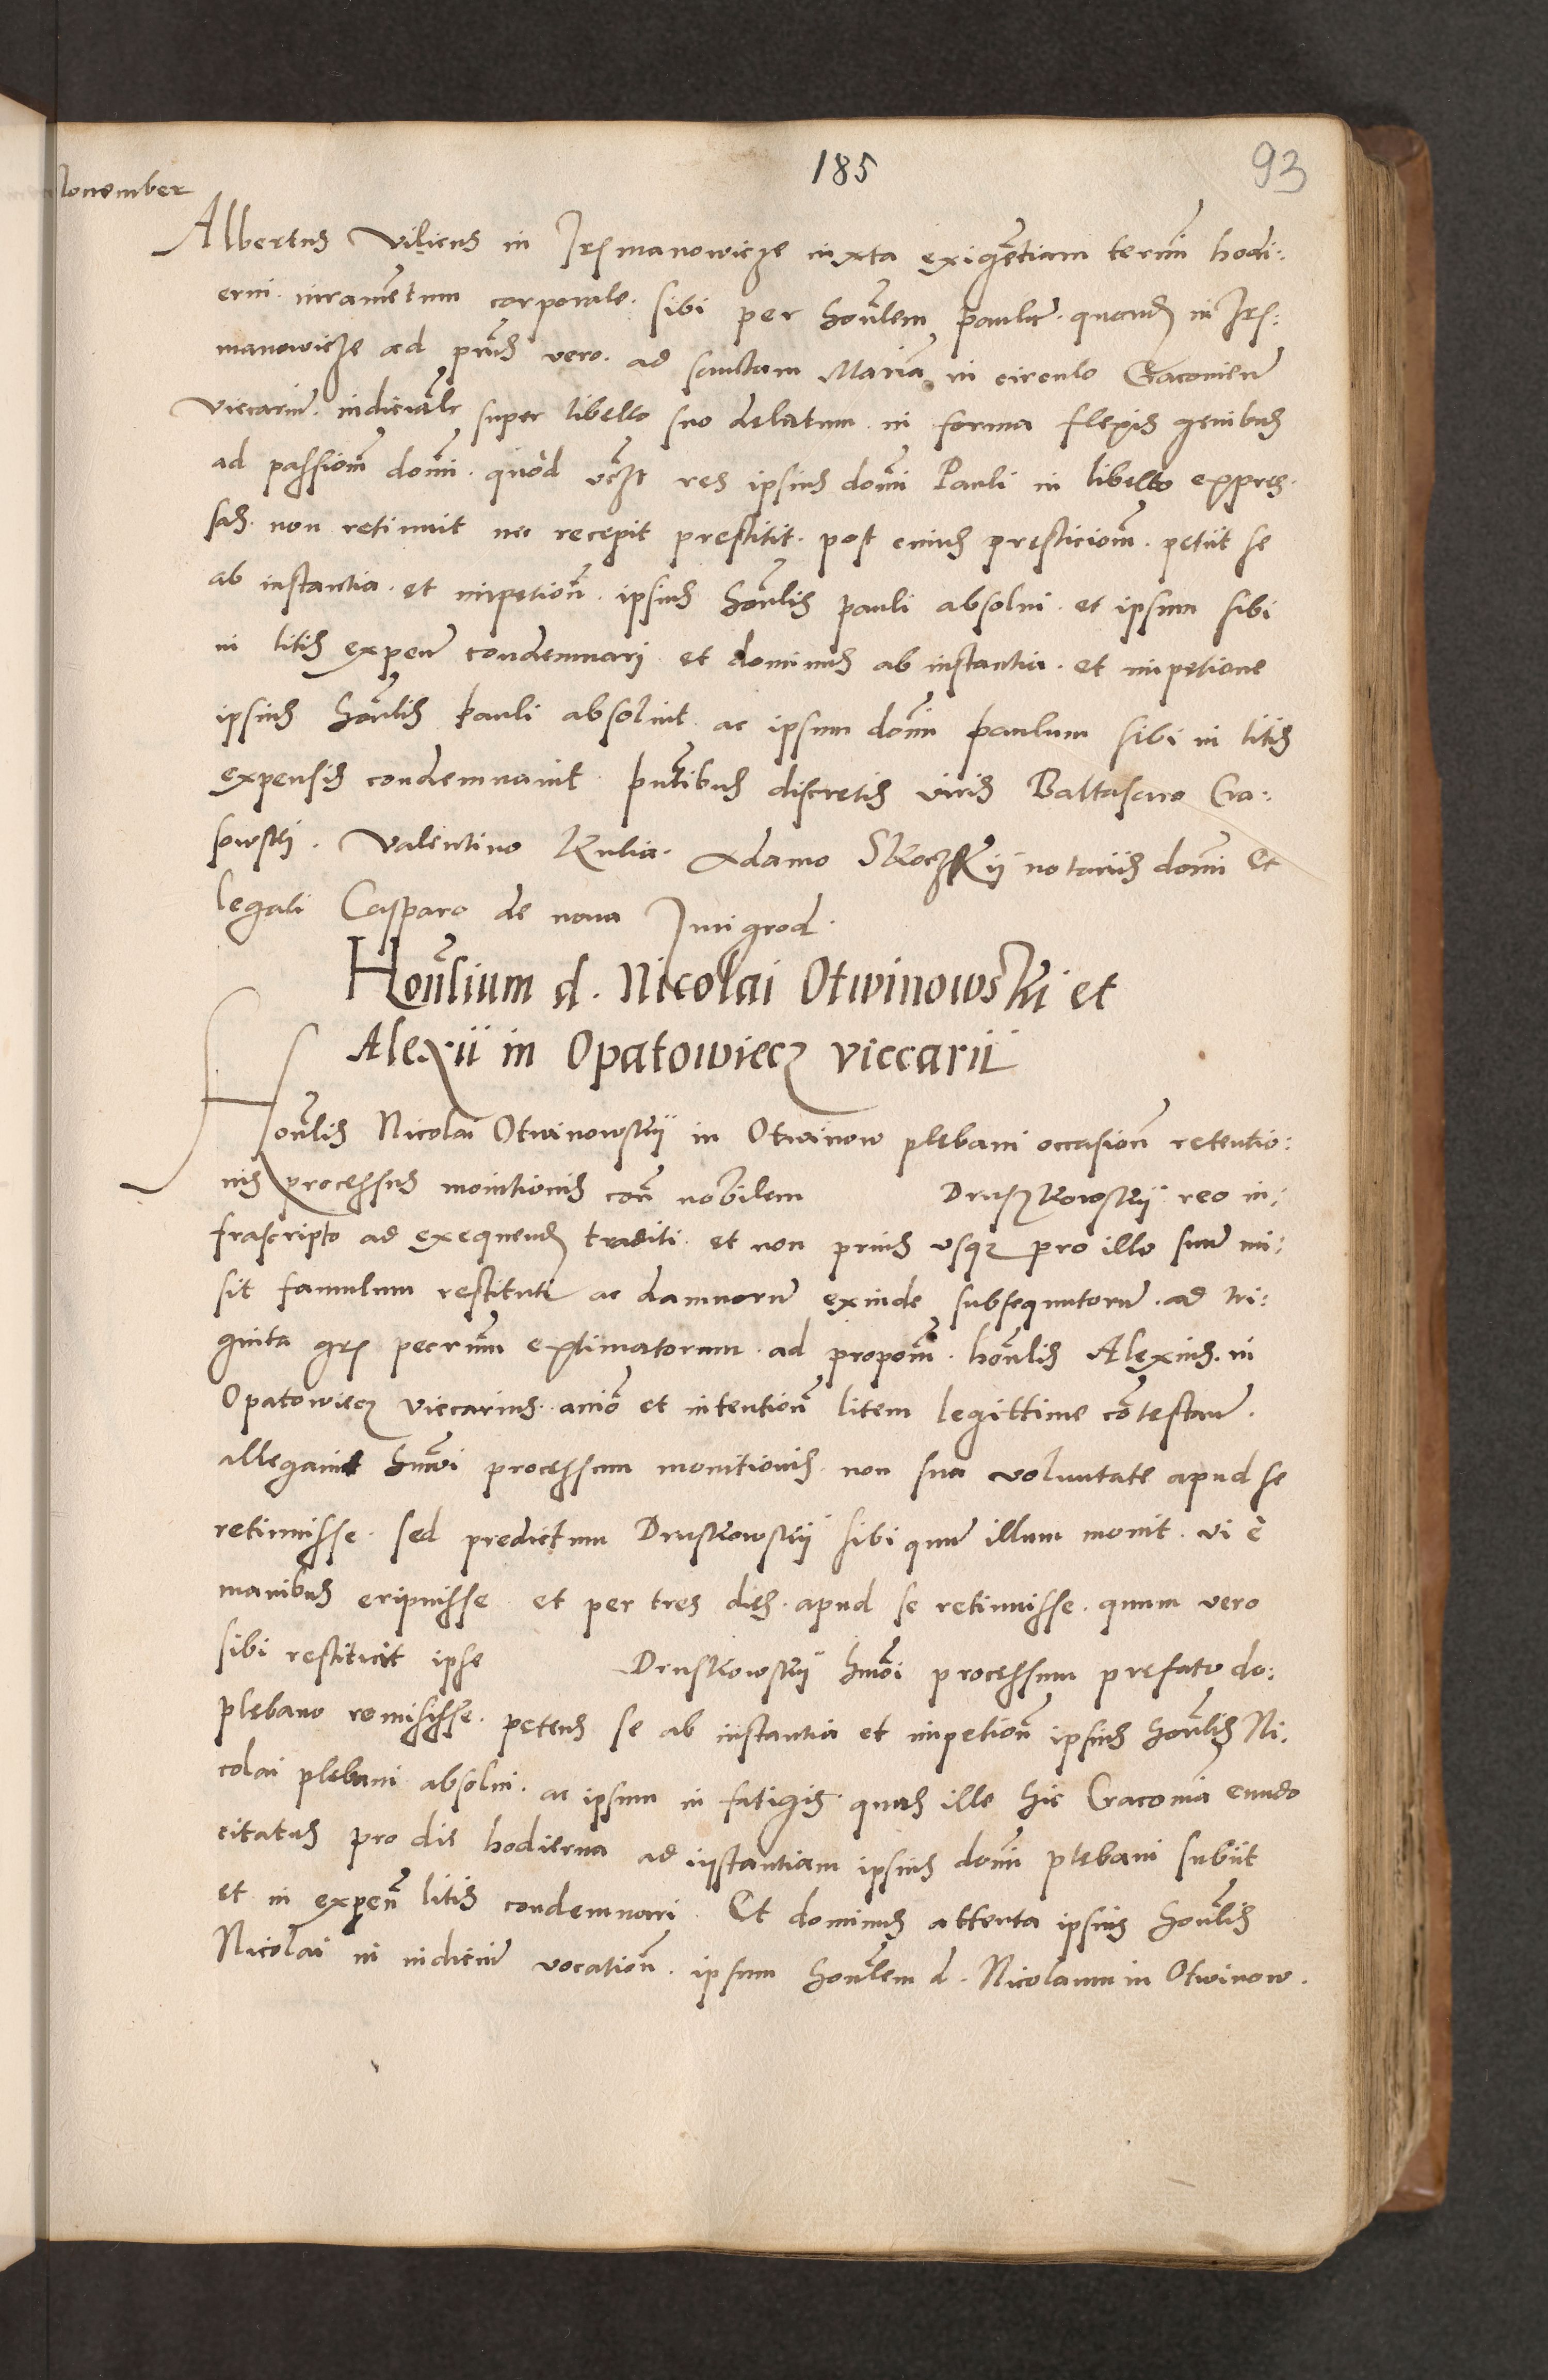 185
93
November
Albertus Vilicus in Irzmanowicze iuxta exigentiam termi hodi:
erni. iuramentum corporale. sibi per honlem paulum quond in Irz:
manowicze ad pns vero. ad sanctam Maria in circulo Cracoviens
viccarium. iudicialr super libello suo delatum in forma flexis genibus
ad passiom domi. quod vczt res ipsius domi Pauli in libello expres.
sas. non retinuit nec recepit prestitit. post cuius presticiom. petiit se
ab instantia. et impetione. ipsius honlis pauli absolui. et ipsum sibi
in litis expens condemnari. et dominus ab instantia. et impetione
ipsius honlis Pauli absoluit. ac ipsum domi paulum sibi in litis
expensis condemnauit. pntibus discretis viris Baltasaro Cra:
sowski. Valentino Kulia. Adamo Skoczkii notariis domi et
legali Casparo de noua Imigrod.
Honlium d. Nicolai Otwinowski et
Alexii in Opatowiecz viccarii
Honlis Nicolai Otwinowskii in Otwinow plebani occasione retentio:
nis processus monitionis con nobilem Druszkowskii reo in:
frascripto ad exequend traditi. et non prius vsqz pro illo suum mi:
sit famulum restituti ac damnorum exinde subsequutorum. ad tri:
ginta grz pecunm extimatorum. ad propom. honlis Alexius. in
Opatowiecz viccarius. animo et intentione litem legittime contestan.
allegauit hmoi processum monitionis. non sua voluntate apud se
retinuisse. sed predictum Druskowskii sibi quum illum monit. vi e
manibus eripuisse et per tres dies. apud se retinuisse. quum vero
sibi restituit ipse Druskowskii hmoi processum prefato do:
plebano remisisse. petens se ab instantia et impetione ipsius honlis Ni:
colai plebani absolui. ac ipsum in fatigis quas ille hic Cracouia eundo
citatus pro die hodierna ad instantiam ipsius domi plebani subiit
et in expens litis condemnari. Et dominus attenta ipsius honlis
Nicolai in iudicium vocatione. ipsum honlem d. Nicolaum in Otwinow.